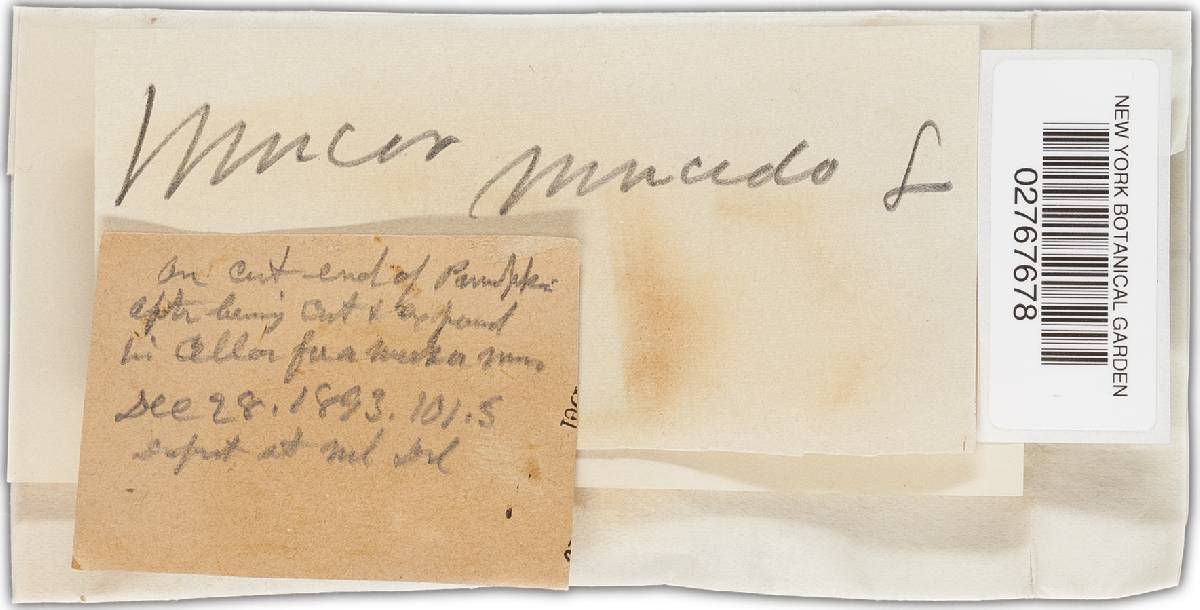 Mucor mucedo L
On cut end of Pumpkin
after being cut & exposed
in Cellar for a week or more
Dec 28. 1893. 101.S
at
NEW YORK BOTANICAL GARDEN
02767678